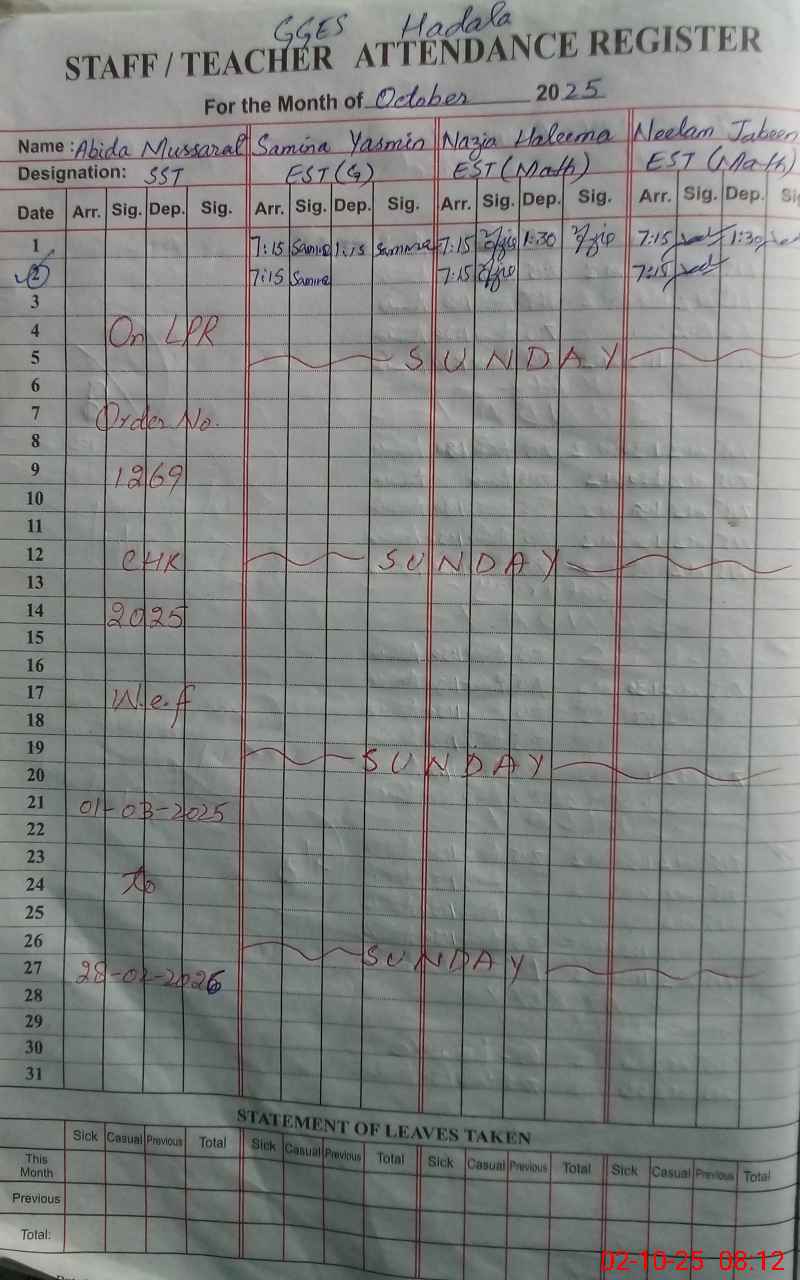 GGES Hadala
STAFF / TEACHER ATTENDANCE REGISTER
For the Month of October 2025
Name : Abida Mussarat Samina Yasmin Nazia Haleema Neelam Jabeen
Designation: SST EST (G) EST (Math) EST (Math)
Date Arr. Sig. Dep. Sig. Arr. Sig. Dep. Sig. Arr. Sig. Dep. Sig. Arr. Sig. Dep.
1 7:15 Samina 1:15 Samina 7:15 1:30 7:15 1:30
2 7:15 Samina 7:15 7:15
3
4 On LPR
5 SUNDAY
6
7 Order No.
8
9 1269
10
11
12 CHK SUNDAY
13
14 2025
15
16
17 W.e.f
18
19 SUNDAY
20
21 01-03-2025
22
23
24 to
25
26 SUNDAY
27 28-02-2026
28
29
30
31
STATEMENT OF LEAVES TAKEN
Sick Casual Previous Total Sick Casual Previous Total Sick Casual Previous Total Sick Casual Previous Total
This Month
Previous
Total:
02-10-25 08:12